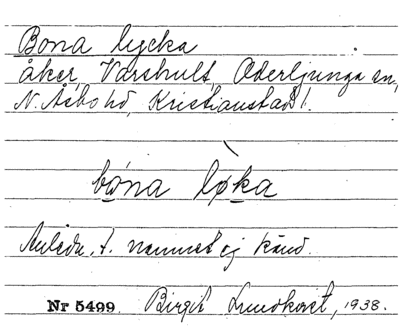 Bona lycka
åker, Varshult, Oderljunga sn,
N. Åsbo hd, Kristianstads l.
bo̲na lø̲ka
Anledn. t. namnet ej känd.
Nr 5499 Birgit Lundkvist, 1938.